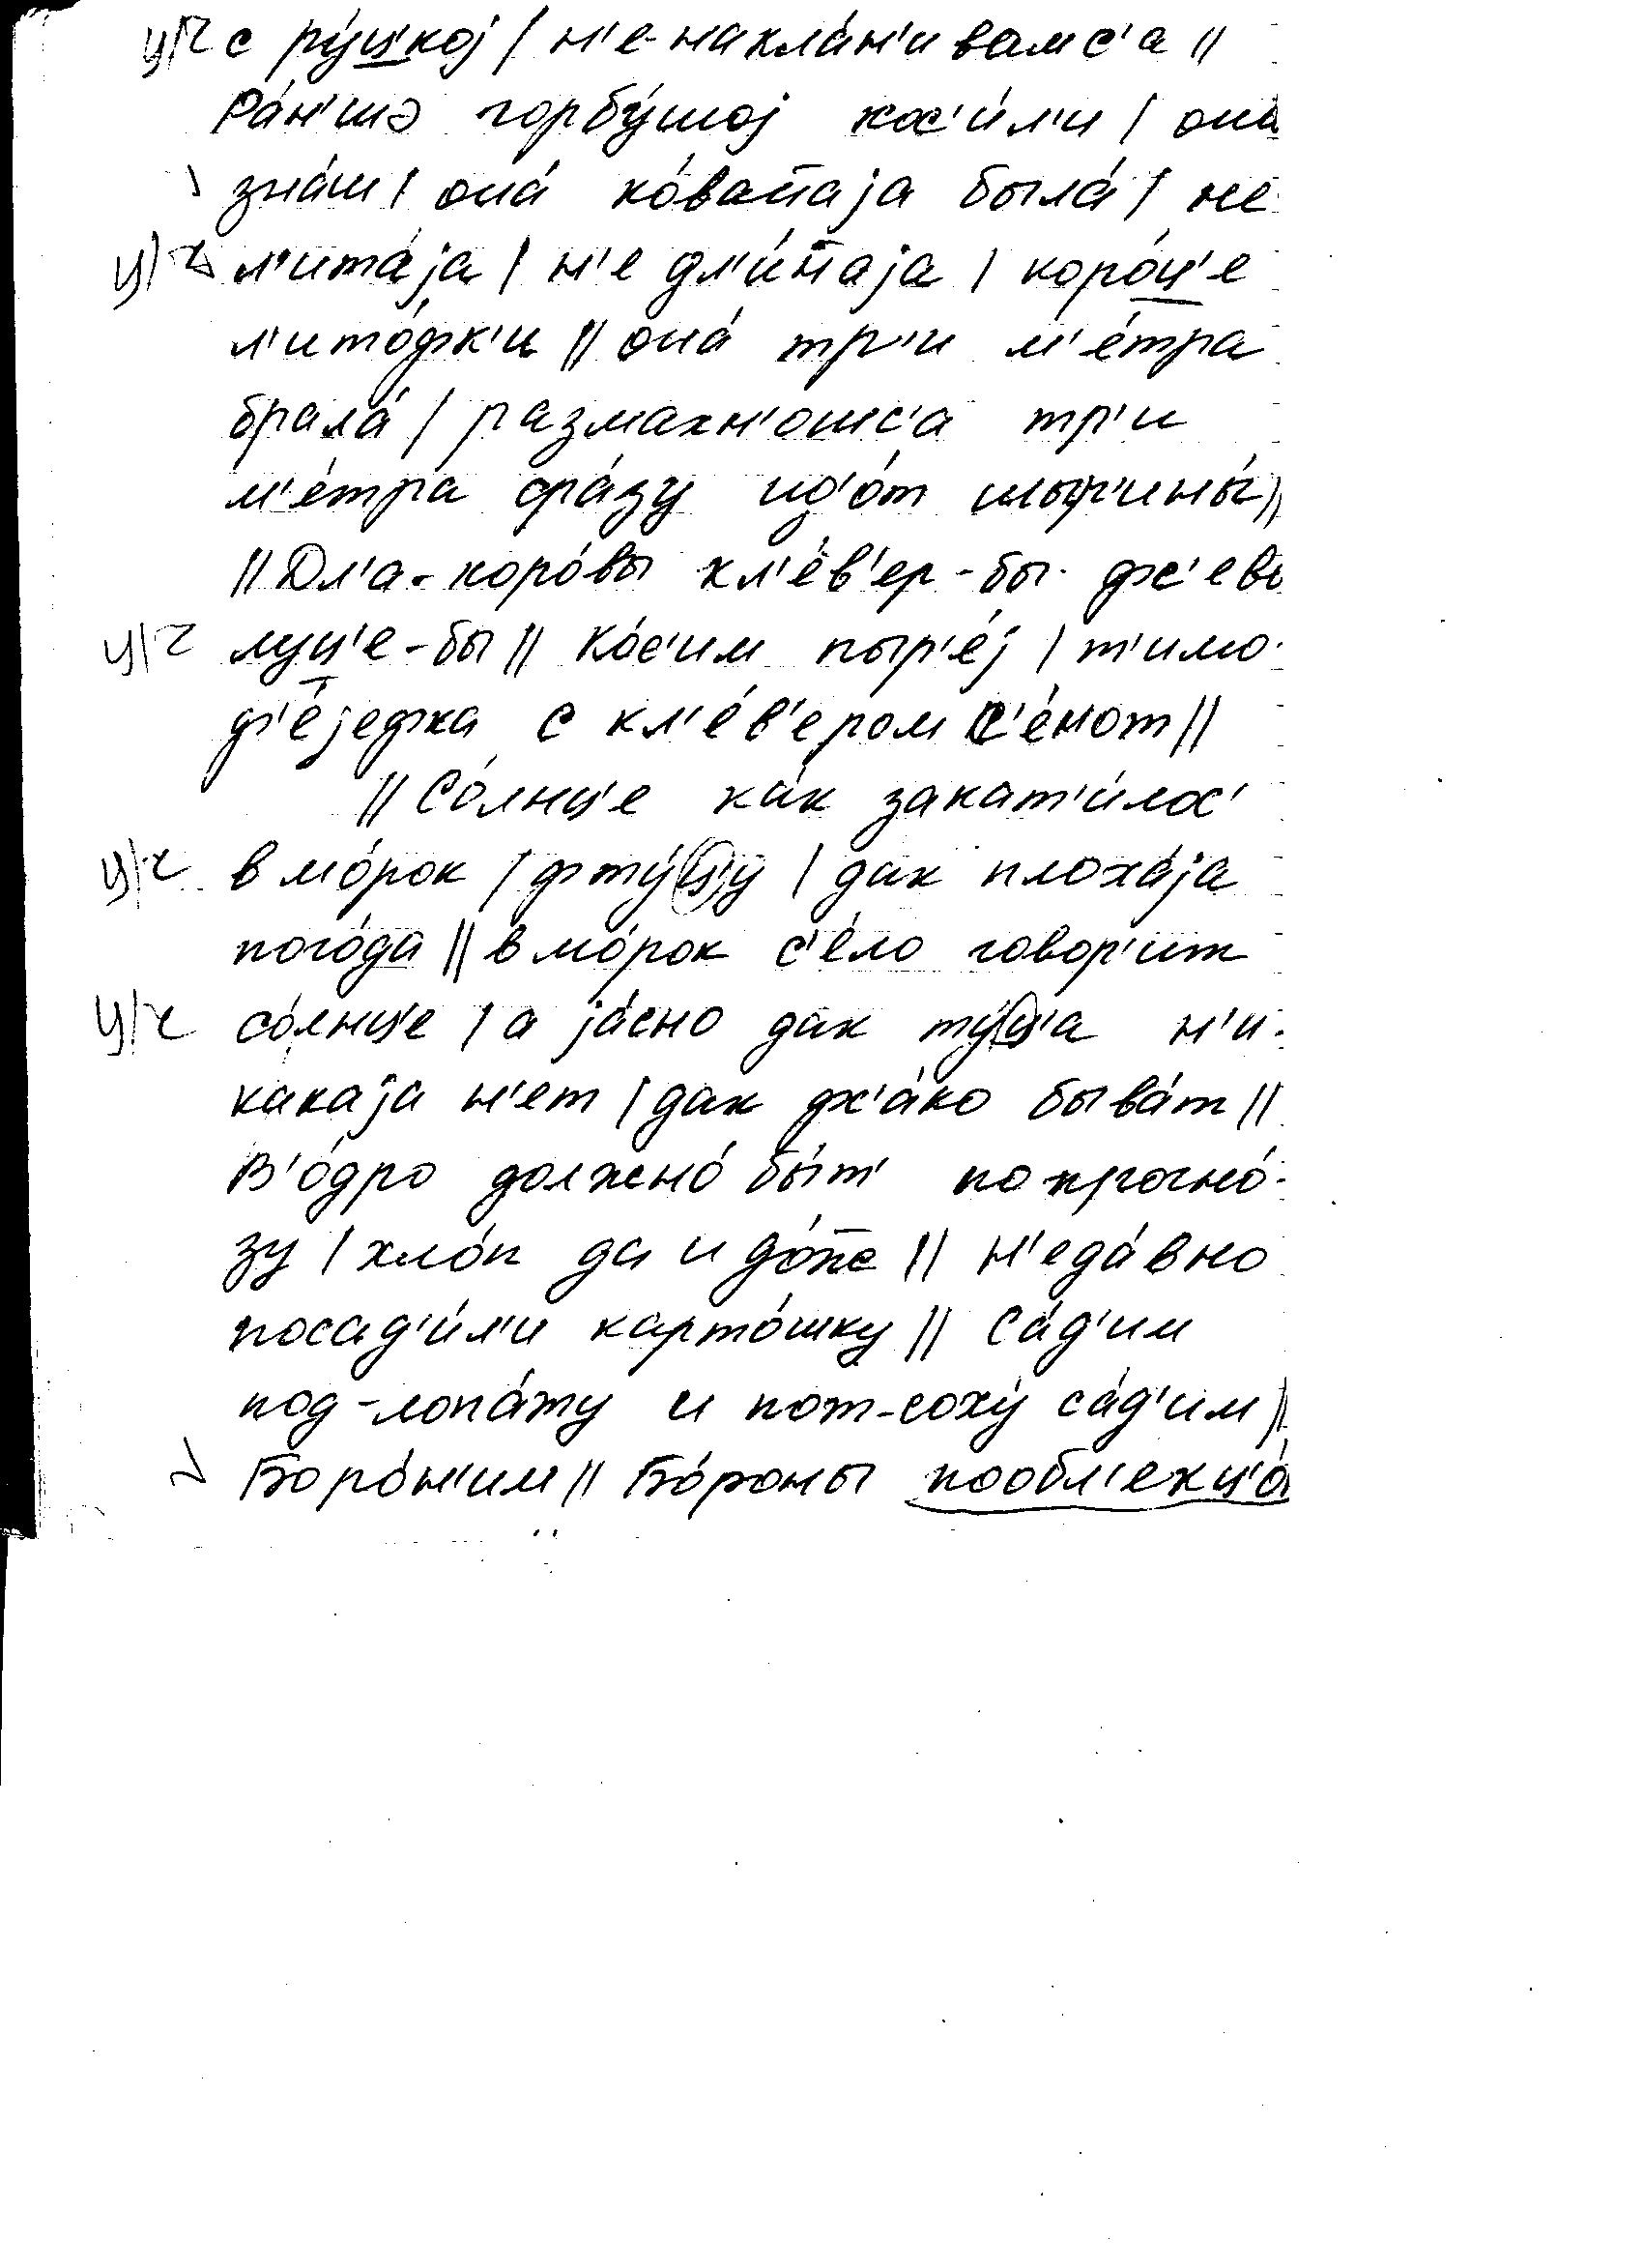 ц/ч с ру́цкој / н'е-накла́н'иваmс'а //
Ра́н'шэ горбу́шој кос'и́л'и / она
зна́ш / она́ ко́ванаја была́ / не
ц/ч л'ита́ја / н'е дл'и́наја / коро́ц'е
л'ито́фк'и // она́ тр'и м'е́тра
брала́ / размахн'ошс'а тр'и
м'е́тра сра́зу ид'о́т шыр'ины́ //
// Дл'а-коро́вы кл'е́в'ер-бы фс'ево
ц/ч луц'е-бы // Ко́с'им пыр'е́ј / т'имо-
ф'е́јефка с кл'е́в'ером с'е́јот //
// Со́лнц'е ка́к закат'и́лос'
ц/ч в мо́рок / фту́ц'у / дак плоха́ја
пого́да // в мо́рок с'е́ло говор'ит
ц/ч со́лнце / а ја́сно дак ту́ц'а н'и-
какаја н'ет / дак фс'а́ко быва́т //
В'о́дро должно́ бы́т' по прогно́-
зу / хло́п да и до́ш // н'еда́вно
посад'и́л'и карто́шку // Са́д'им
под-лопа́ту и пот-соху́ са́д'им //
Боро́н'им // Бо́роны пообл'екц'о́